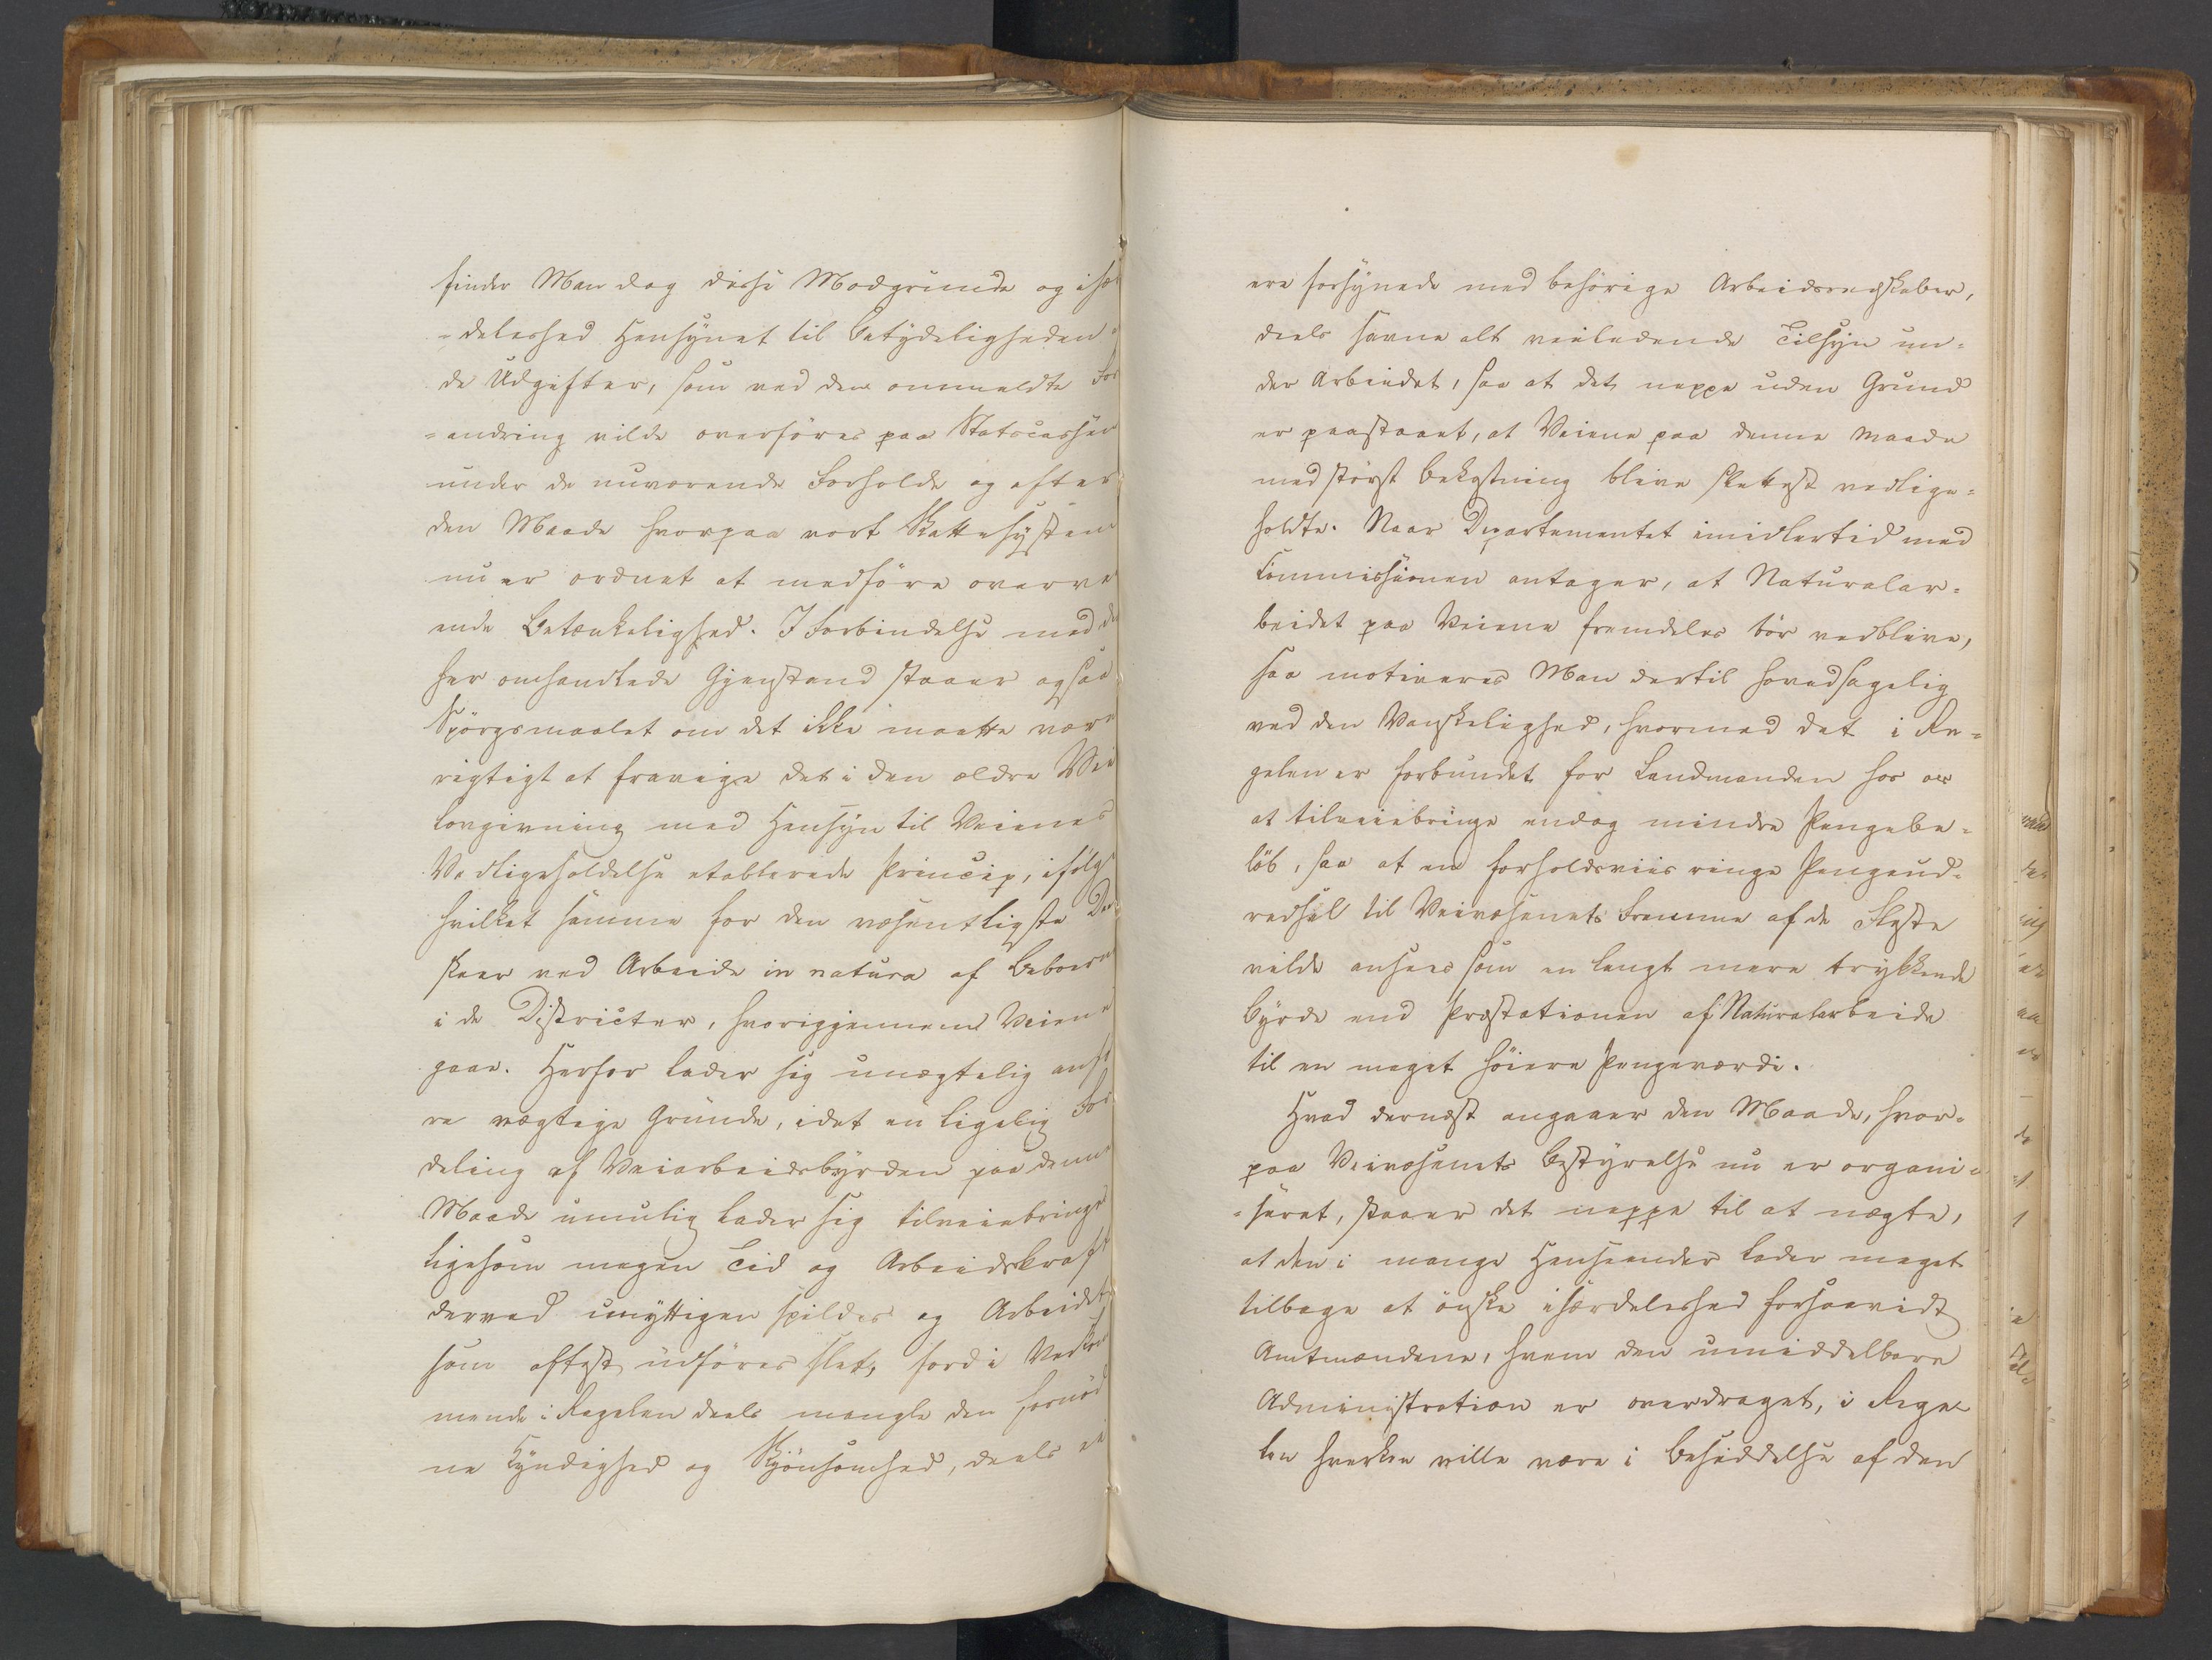 finder Man dog disse Modgrunde og især
=deleshed Hensynet til Betydeligheden a
de Udgifter, som ved den ommeldte For
=andring vilde overføres paa Statscassen
under de nuværende Forholde og efter
den Maade hvorpaa vort Skattesystem
nu er ordnet at medføre overvei
ende Betænkelighed. I Forbindelse med de
her omhandlede Gjenstand staaer ogsaa
Spörgsmaalet om det ikke maatte være
rigtigt at fravige det i den ældre Vei
lovgivning med Hensyn til Veienes
Vedligeholdelse etablerede Princip, ifølge
hvilket samme for den væsentligste Deel
skeer ved Arbeide in natura af Beboerne
i de Districter, hvorigjennem Veiene
gaae. Herfor lader sig unægtelig anfö
re vægtige Grunde, idet en ligelig For
deling af Veiarbeidsbyrden paa denne
Maade umulig lader sig tilveiebringe
ligesom megen Tid og Arbeidskraft
derved unyttigen spildes og Arbeidet
som oftest udføres slet, fordi Vedkom
mende i Regelen deels mangle den fornöd
ne Kyndighed og Skjönsomhed, deels ei
ere forsynede med behörige Arbeidsredskaber,
deels savne alt veiledende Tilsyn un=
der Arbeidet, saa at det neppe uden Grund
er paastaaet, at Veiene paa denne Maade
med störst Bekostning blive slettest vedlige=
holdte. Naar Departementet imidlertid med
Commissionen antager, at Naturalar=
beidet paa Veiene fremdeles bör vedblive,
saa motiveres Man dertil hovedsagelig
ved den Vanskelighed, hvormed det i Re=
gelen er forbundet for Landmanden hos os
at tilveiebringe endog mindre Pengebe=
löb, saa at en forholdsviis ringe Pengeud=
redsel til Veivæsenets Fremme af de Fleste
vilde ansees som en langt mere trykkende
Byrde end Præstationen af Naturalarbeide
til en meget höiere Pengeværdi.
Hvad dernæst angaaer den Maade, hvor=
paa Veivæsenets Bestyrelse nu er organi=
=seret, staaer det neppe til at nægte,
at den i mange Henseender lader meget
tilbage at önske isærdeleshed forsaavidt
Amtmændene, hvem den umiddelbare
Administration er overdraget, i Rege=
len hverken ville være i Besiddelse af den